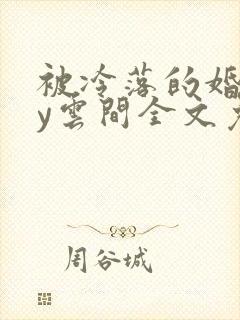 被冷落的婚
y雲間全文
周谷城